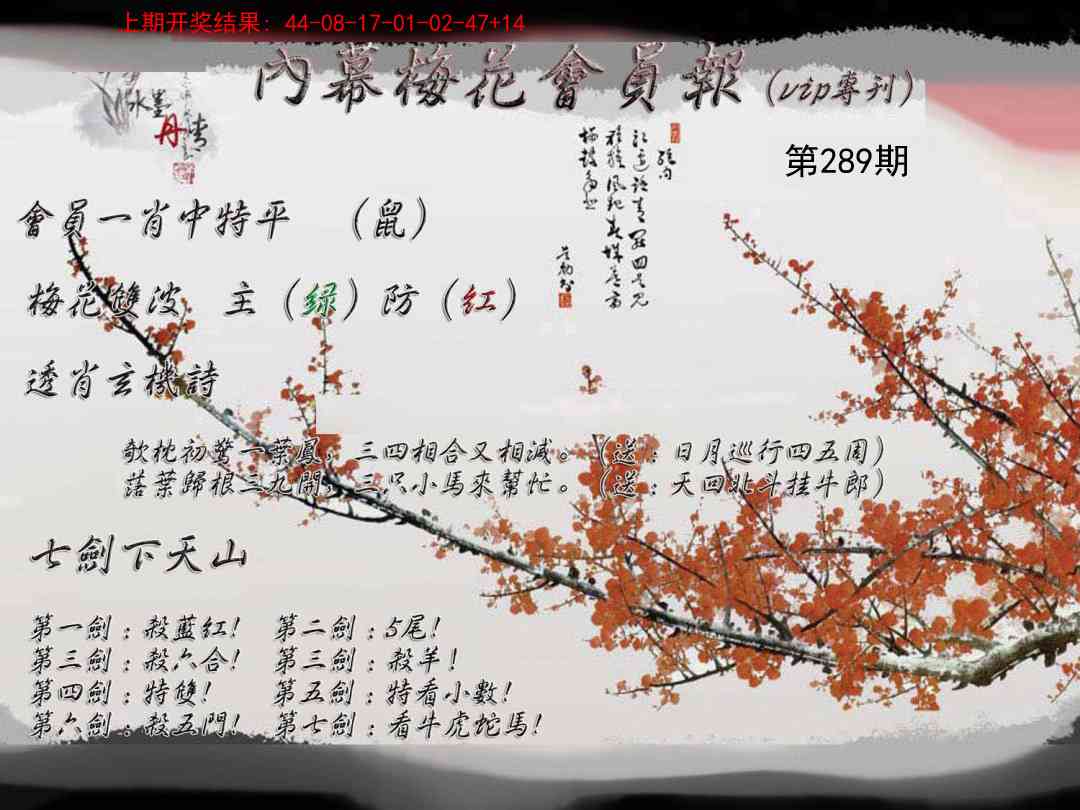 上期开奖结果：44-08-17-01-02-47+14
內幕梅花會員報（vip專刊）
水墨
丹青
第289期
會員一肖中特平 （鼠）
梅花雙波 主（绿）防（红）
透肖玄機詩
欹枕初驚一葉鳳，三四相合又相減。（送：日月巡行四五周）
落葉歸根三九開，三只小馬來幫忙。（送：天回北斗挂牛郎）
七劍下天山
第一劍：殺藍紅！ 第二劍：5尾！
第三劍：殺六合！ 第三劍：殺羊！
第四劍：特雙！ 第五劍：特看小數！
第六劍：殺五門！ 第七劍：看牛虎蛇馬！